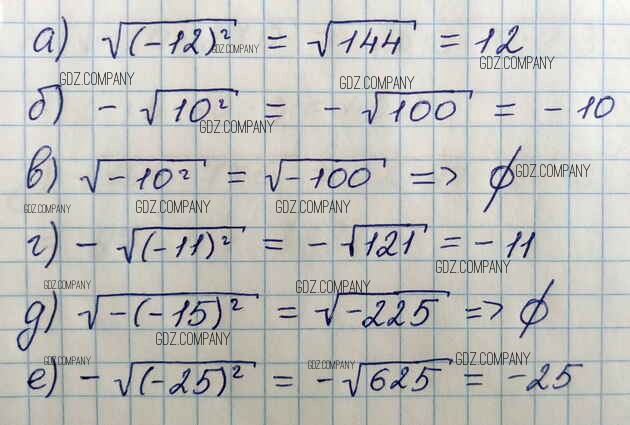 а) √(-12)² = √144 = 12
GDZ.COMPANY
GDZ.COMPANY GDZ.COMPANY GDZ.COMPANY
б) - √10² = - √100 = - 10
GDZ.COMPANY
в) √-10² = √-100 => ∅
GDZ.COMPANY
GDZ.COMPANY GDZ.COMPANY GDZ.COMPANY
г) - √(-11)² = - √121 = - 11
GDZ.COMPANY
GDZ.COMPANY GDZ.COMPANY
д) √-(-15)² = √-225 => ∅
GDZ.COMPANY
GDZ.COMPANY GDZ.COMPANY GDZ.COMPANY
е) - √(-25)² = - √625 = -25